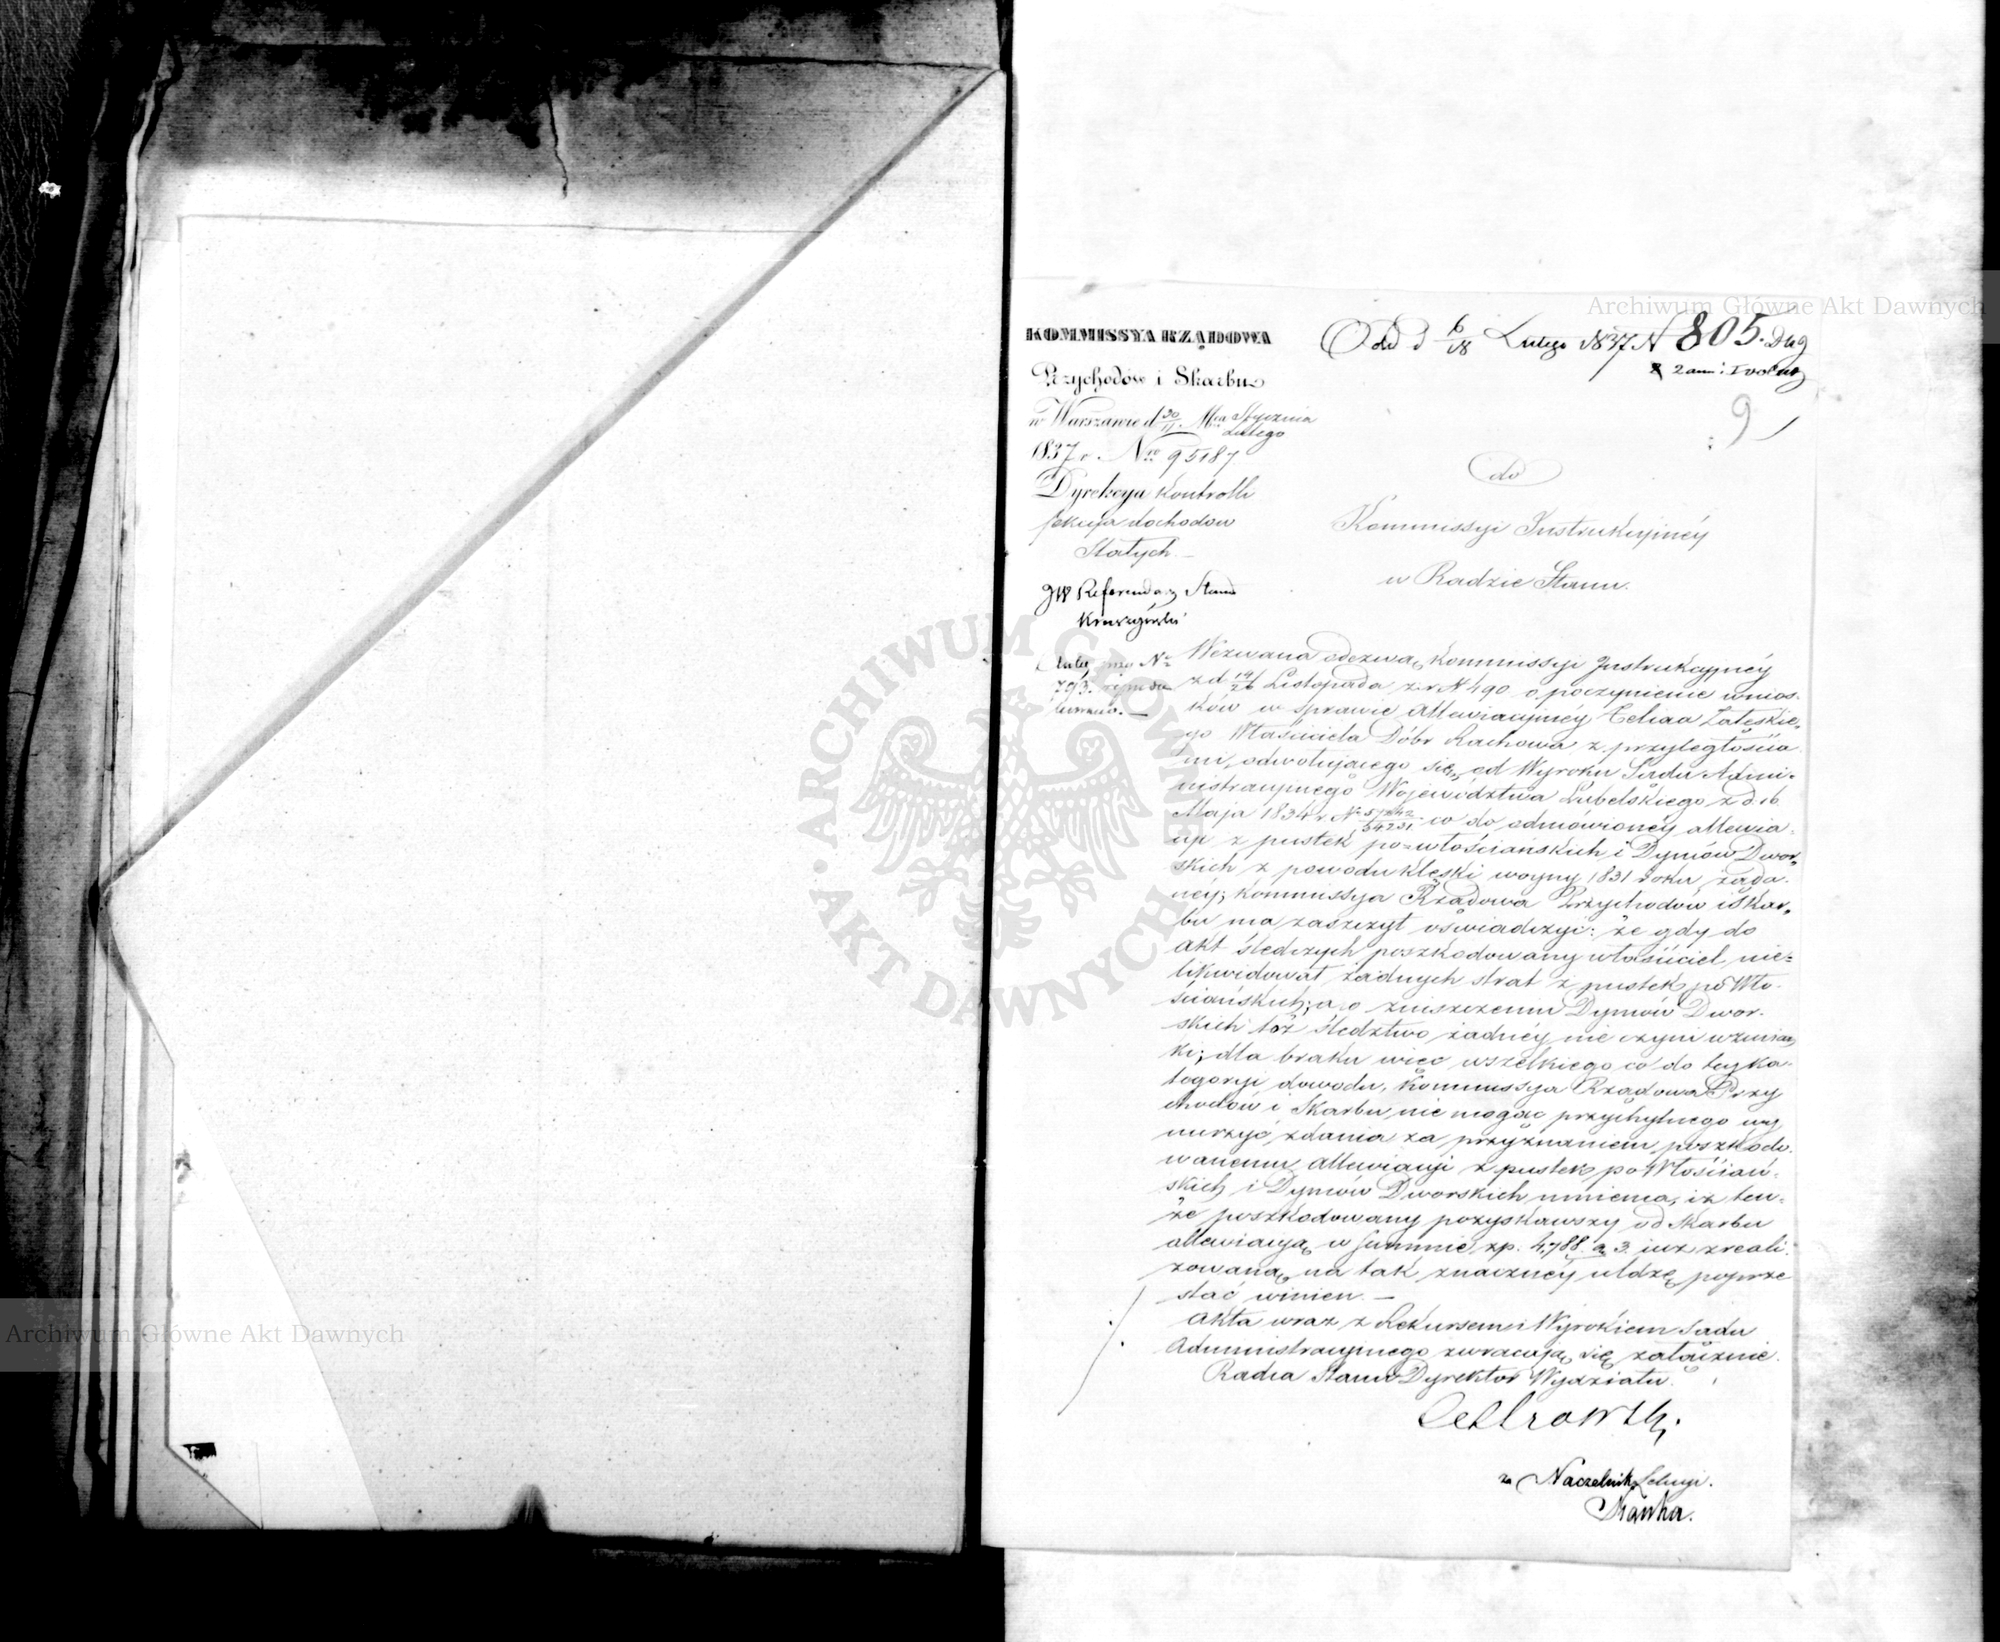 KOMMISSYA RZĄDOWA
Przychodów i Skarbu
w Warszawie d 30/11 Mca Stycznia/Lutego
1837 r. Nro 95187
Dyrekcya Kontrolli
Sekcya dochodów
Stałych.
JW Referendarz Stanu
Od d 6/18 Lutego 1837 N 805.
9
do
Kommissyi Instrukcyinéy
w Radzie Stanu.
Wezwana odezwą Kommissyi Instrukcyjnéy
z d 14/26 Listopada z. r. N 490 o poczynienie wnios-
ków w sprawie Allewiacyinéy Załeskie-
go Właściciela Dóbr Rachowa z przyległościa
mi, odwołującego się od Wyroku Sądu Admi-
nistracyinego Województwa Lubelskiego z d. 16
Maja 1834 r. No co do odmówionéy allewia-
cyi z pustek po-włościańskich i Dymów Dwor-
skich z powodu klęski woyny 1831 roku żąda-
néy; Kommissya Rządowa Przychodów i Skar-
bu ma zaszczyt oświadczyć: że gdy do
akt śledczych poszkodowany właściciel nie-
likwidował żadnych strat z pustek po Wło-
ściańskich; a o zniszczeniu Dymów Dwor-
skich też śledztwo żadnéy nie czyni wzmian
ki; dla braku więc wszelkiego co do tey ka-
togoryi dowodu, Kommissya Rządowa Przy
chodów i Skarbu, nie mogąc przychylnego wy
nurzyć zdania za przyznaniem poszkodo
wanemu allewiacyi z pustek po Włościań-
skich i Dymów Dworskich mniema, iż ten-
że poszkodowany pozyskawszy od Skarbu
allewiacyą w Summie zp. 4,788. g 3. iuż zreali-
zowaną, na tak znacznéy uldze poprze
stać winien. —
Akta wraz z Rekursem i Wyrokiem Sądu
Administracyinego zwracają się załącznie.
Radca Stanu Dyrektor Wydziału.
za Naczelnik Sekcyi.
Archiwum Główne Akt Dawnych
Archiwum Główne Akt Dawnych
ARCHIWUM GŁÓWNE · AKT DAWNYCH ·